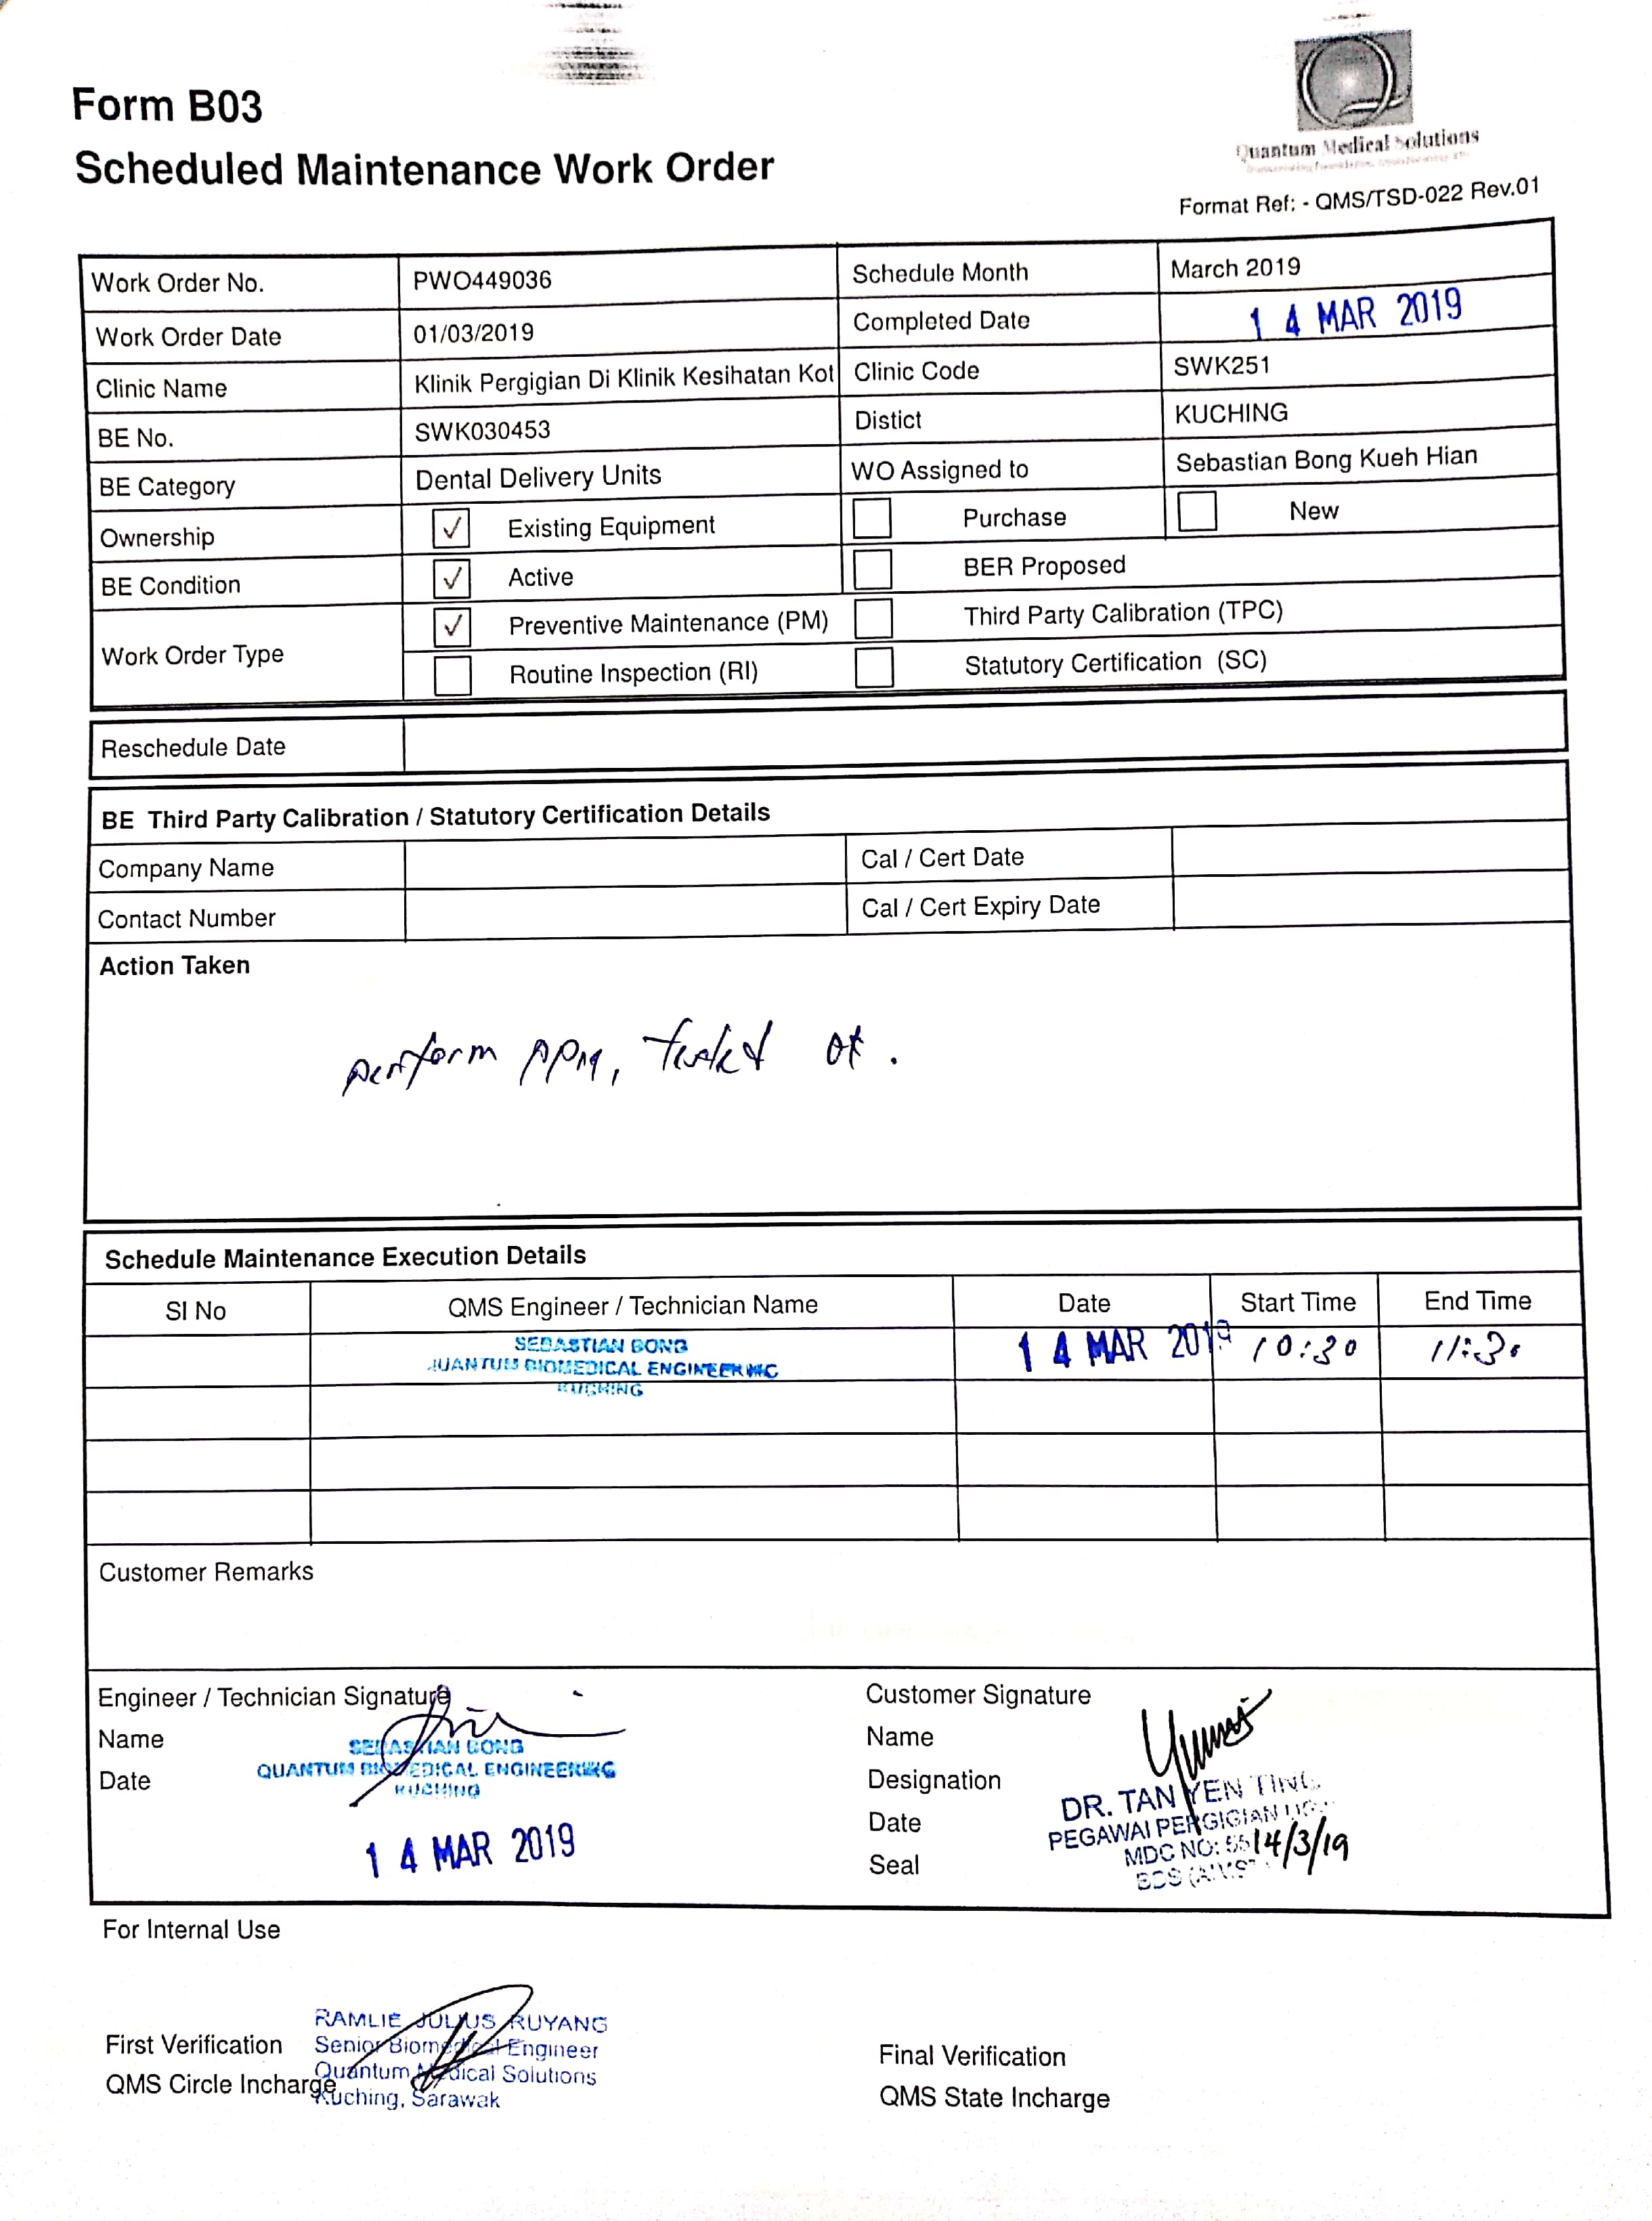 Form B03
Scheduled Maintenance Work Order
Quantum Medical Solutions
Format Ref: - QMS/TSD-022 Rev.01
Work Order No. PWO449036 Schedule Month March 2019
Work Order Date 01/03/2019 Completed Date 14 MAR 2019
Clinic Name Klinik Pergigian Di Klinik Kesihatan Kot Clinic Code SWK251
BE No. SWK030453 Distict KUCHING
BE Category Dental Delivery Units WO Assigned to Sebastian Bong Kueh Hian
Ownership ✓ Existing Equipment Purchase New
BE Condition ✓ Active BER Proposed
Work Order Type ✓ Preventive Maintenance (PM) Third Party Calibration (TPC)
Routine Inspection (RI) Statutory Certification (SC)
Reschedule Date
BE Third Party Calibration / Statutory Certification Details
Company Name Cal / Cert Date
Contact Number Cal / Cert Expiry Date
Action Taken
perform PPM, tested ok.
Schedule Maintenance Execution Details
SI No QMS Engineer / Technician Name Date Start Time End Time
SEBASTIAN BONG
QUANTUM BIOMEDICAL ENGINEERING
KUCHING
14 MAR 2019 10:30 11:30
Customer Remarks
Engineer / Technician Signature
Name
Date
SEBASTIAN BONG
QUANTUM BIOMEDICAL ENGINEERING
KUCHING
14 MAR 2019
Customer Signature
Name
Designation
Date
Seal
DR. TAN YEN TING
PEGAWAI PERGIGIAN
MDC NO:
14/3/19
BDS
For Internal Use
First Verification
QMS Circle Incharge
RAMLIE JULIUS RUYANG
Senior Biomedical Engineer
Quantum Medical Solutions
Kuching, Sarawak
Final Verification
QMS State Incharge